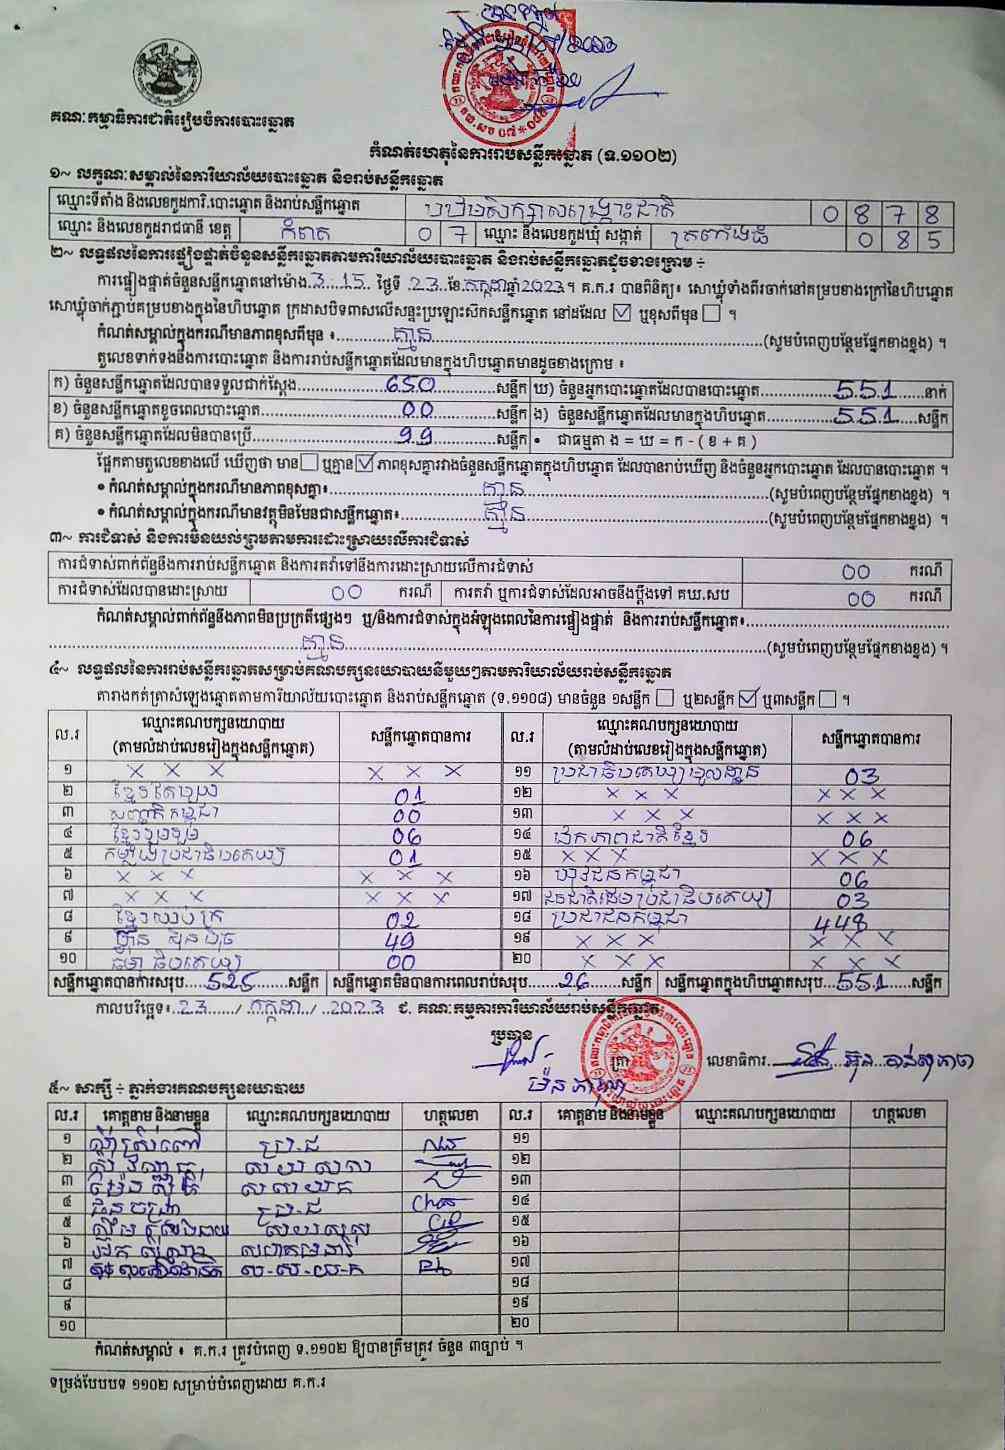 គណៈកម្មាធិការជាតិរៀបចំការបោះឆ្នោត
កំណត់ហេតុនៃការរាប់សន្លឹកឆ្នោត (ទ.១១០២)
១~ លក្ខណៈសម្គាល់នៃការិយាល័យបោះឆ្នោត និងរាប់សន្លឹកឆ្នោត
ឈ្មោះទីតាំង និងលេខកូដការិ.បោះឆ្នោត និងរាប់សន្លឹកឆ្នោត បឋមសិក្សាសង្គ្រោះជាតិ 0 8 7 8
ឈ្មោះ និងលេខកូដរាជធានី ខេត្ត កំពត 0 7 ឈ្មោះ និងលេខកូដឃុំ សង្កាត់ ត្រពាំងធំ 0 8 5
២~ លទ្ធផលនៃការផ្ទៀងផ្ទាត់ចំនួនសន្លឹកឆ្នោតតាមការិយាល័យបោះឆ្នោត និងរាប់សន្លឹកឆ្នោតដូចខាងក្រោម ÷
ការផ្ទៀងផ្ទាត់ចំនួនសន្លឹកឆ្នោតនៅម៉ោង 3:15 ថ្ងៃទី 23 ខែ កក្កដា ឆ្នាំ 2023។ គ.ក.រ បានពិនិត្យ៖ សោឃ្លុំទាំងពីរចាក់នៅគម្របខាងក្រៅនៃហិបឆ្នោត
សោឃ្លុំចាក់ភ្ជាប់គម្របខាងក្នុងនៃហិបឆ្នោត ក្រដាសបិទពាសលើសន្ទះប្រឡោះសិកសន្លឹកឆ្នោត នៅដដែល ☑ ឬខុសពីមុន ☐ ។
កំណត់សម្គាល់ក្នុងករណីមានភាពខុសពីមុន ៖ គ្មាន (សូមបំពេញបន្ថែមផ្នែកខាងខ្នង) ។
តួលេខទាក់ទងនឹងការបោះឆ្នោត និងការរាប់សន្លឹកឆ្នោតដែលមានក្នុងហិបឆ្នោតមានដូចខាងក្រោម ៖
ក) ចំនួនសន្លឹកឆ្នោតដែលបានទទួលជាក់ស្តែង 650 សន្លឹក ឃ) ចំនួនអ្នកបោះឆ្នោតដែលបានបោះឆ្នោត 551 នាក់
ខ) ចំនួនសន្លឹកឆ្នោតខូចពេលបោះឆ្នោត 00 សន្លឹក ង) ចំនួនសន្លឹកឆ្នោតដែលមានក្នុងហិបឆ្នោត 551 សន្លឹក
គ) ចំនួនសន្លឹកឆ្នោតដែលមិនបានប្រើ 99 សន្លឹក • ជាធម្មតា ង = ឃ = ក - ( ខ + គ )
ផ្អែកតាមតួលេខខាងលើ ឃើញថា មាន ☐ ឬគ្មាន ☑ ភាពខុសគ្នារវាងចំនួនសន្លឹកឆ្នោតក្នុងហិបឆ្នោត ដែលបានរាប់ឃើញ និងចំនួនអ្នកបោះឆ្នោត ដែលបានបោះឆ្នោត ។
• កំណត់សម្គាល់ក្នុងករណីមានភាពខុសគ្នា៖ គ្មាន (សូមបំពេញបន្ថែមផ្នែកខាងខ្នង) ។
• កំណត់សម្គាល់ក្នុងករណីមានវត្ថុមិនមែនជាសន្លឹកឆ្នោត៖ គ្មាន (សូមបំពេញបន្ថែមផ្នែកខាងខ្នង) ។
៣~ ការជំទាស់ និងការមិនយល់ព្រមតាមការដោះស្រាយលើការជំទាស់
ការជំទាស់ពាក់ព័ន្ធនឹងការរាប់សន្លឹកឆ្នោត និងការតវ៉ាទៅនឹងការដោះស្រាយលើការជំទាស់ 00 ករណី
ការជំទាស់ដែលបានដោះស្រាយ 00 ករណី ការតវ៉ា ឬការជំទាស់ដែលអាចនឹងប្តឹងទៅ គឃ.សប 00 ករណី
កំណត់សម្គាល់ពាក់ព័ន្ធនឹងភាពមិនប្រក្រតីផ្សេងៗ ឬ/និងការជំទាស់ក្នុងអំឡុងពេលនៃការផ្ទៀងផ្ទាត់ និងការរាប់សន្លឹកឆ្នោត៖
គ្មាន (សូមបំពេញបន្ថែមផ្នែកខាងខ្នង) ។
៤~ លទ្ធផលនៃការរាប់សន្លឹកឆ្នោតសម្រាប់គណបក្សនយោបាយនីមួយៗតាមការិយាល័យរាប់សន្លឹកឆ្នោត
តារាងកត់ត្រាសំឡេងឆ្នោតតាមការិយាល័យបោះឆ្នោត និងរាប់សន្លឹកឆ្នោត (ទ.១១០៨) មានចំនួន ១សន្លឹក ☐ ឬ២សន្លឹក ☑ ឬ៣សន្លឹក ☐ ។
ល.រ ឈ្មោះគណបក្សនយោបាយ (តាមលំដាប់លេខរៀងក្នុងសន្លឹកឆ្នោត) សន្លឹកឆ្នោតបានការ ល.រ ឈ្មោះគណបក្សនយោបាយ (តាមលំដាប់លេខរៀងក្នុងសន្លឹកឆ្នោត) សន្លឹកឆ្នោតបានការ
១ X X X X X X ១១ ប្រជាធិបតេយ្យមូលដ្ឋាន 03
២ ខ្មែរតែមួយ 01 ១២ X X X X X X
៣ សញ្ជាតិកម្ពុជា 00 ១៣ X X X X X X
៤ ខ្មែររួបរួម 06 ១៤ ឯកភាពជាតិខ្មែរ 06
៥ កម្លាំងប្រជាធិបតេយ្យ 01 ១៥ X X X X X X
៦ X X X X X X ១៦ យុវជនកម្ពុជា 06
៧ X X X X X X ១៧ ជនជាតិដើមប្រជាធិបតេយ្យ 03
៨ ខ្មែរឈប់ក្រ 02 ១៨ ប្រជាជនកម្ពុជា 448
៩ ហ៊្វុនស៊ិនប៉ិច 49 ១៩ X X X X X X
១០ ធម្មាធិបតេយ្យ 00 ២០ X X X X X X
សន្លឹកឆ្នោតបានការសរុប 525 សន្លឹក សន្លឹកឆ្នោតមិនបានការពេលរាប់សរុប 26 សន្លឹក សន្លឹកឆ្នោតក្នុងហិបឆ្នោតសរុប 551 សន្លឹក
កាលបរិច្ឆេទ៖ 23 / កក្កដា / 2023 ជ. គណៈកម្មការការិយាល័យរាប់សន្លឹកឆ្នោត
ប្រធាន ត្រា លេខាធិការ
៥~ សាក្សី ÷ ភ្នាក់ងារគណបក្សនយោបាយ
ល.រ គោត្តនាម និងនាមខ្លួន ឈ្មោះគណបក្សនយោបាយ ហត្ថលេខា ល.រ គោត្តនាម និងនាមខ្លួន ឈ្មោះគណបក្សនយោបាយ ហត្ថលេខា
១ ប្រ.ជ ១១
២ ១២
៣ ១៣
៤ ប្រ.ជ ១៤
៥ ១៥
៦ ១៦
៧ ១៧
៨ ១៨
៩ ១៩
១០ ២០
កំណត់សម្គាល់ ៖ គ.ក.រ ត្រូវបំពេញ ទ.១១០២ ឱ្យបានត្រឹមត្រូវ ចំនួន ៣ច្បាប់ ។
ទម្រង់បែបបទ ១១០២ សម្រាប់បំពេញដោយ គ.ក.រ